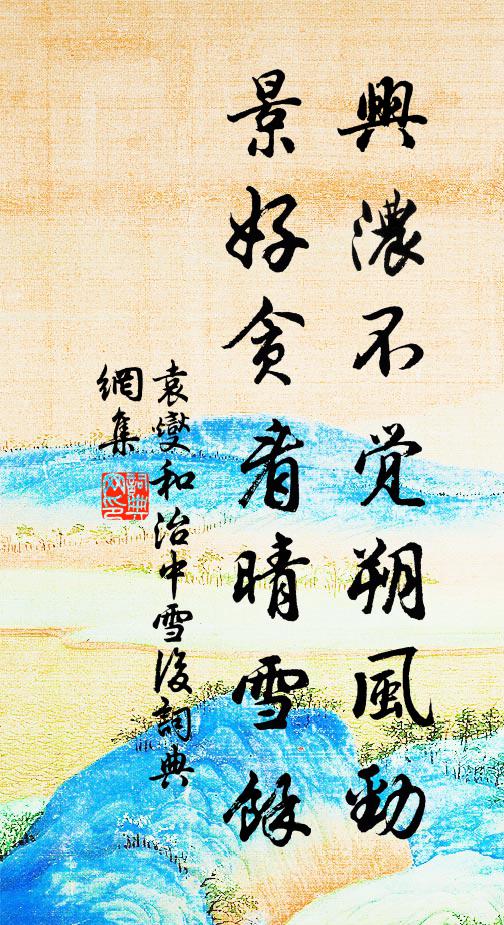 興濃不觉朔風勁
景好贪看晴雪餘
袁燮和治中雪後詞典
網集
詞典